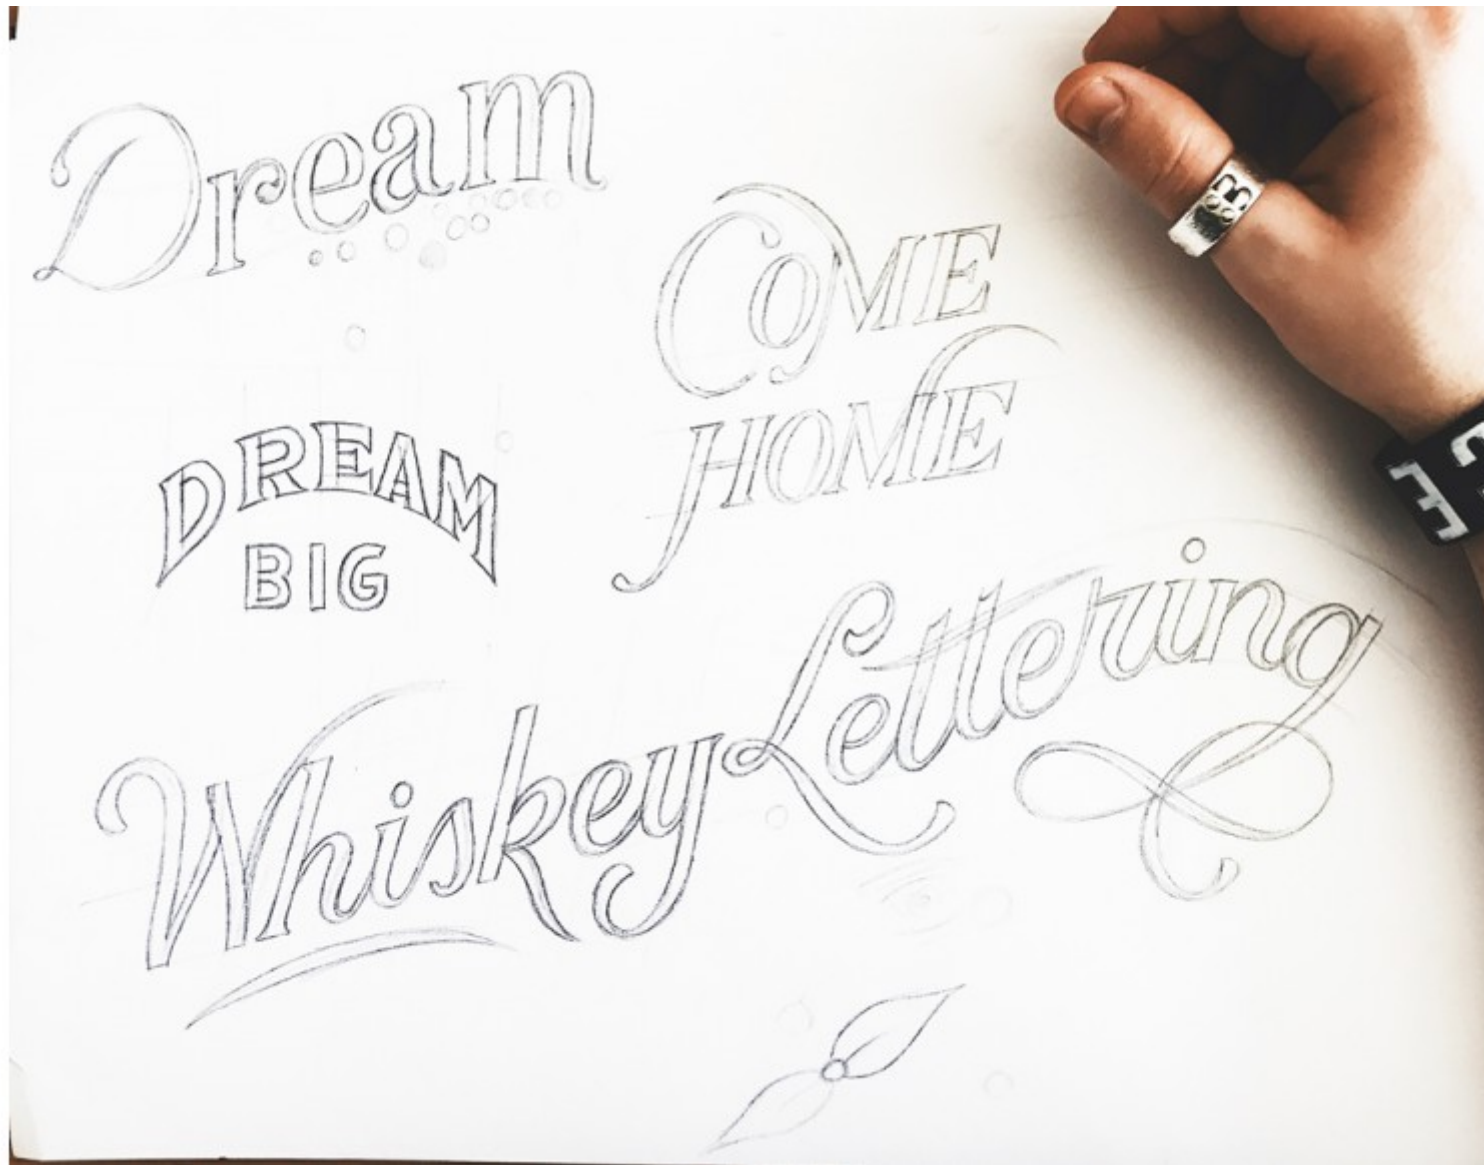 Dream
COME
HOME
DREAM
BIG
Whiskey Lettering